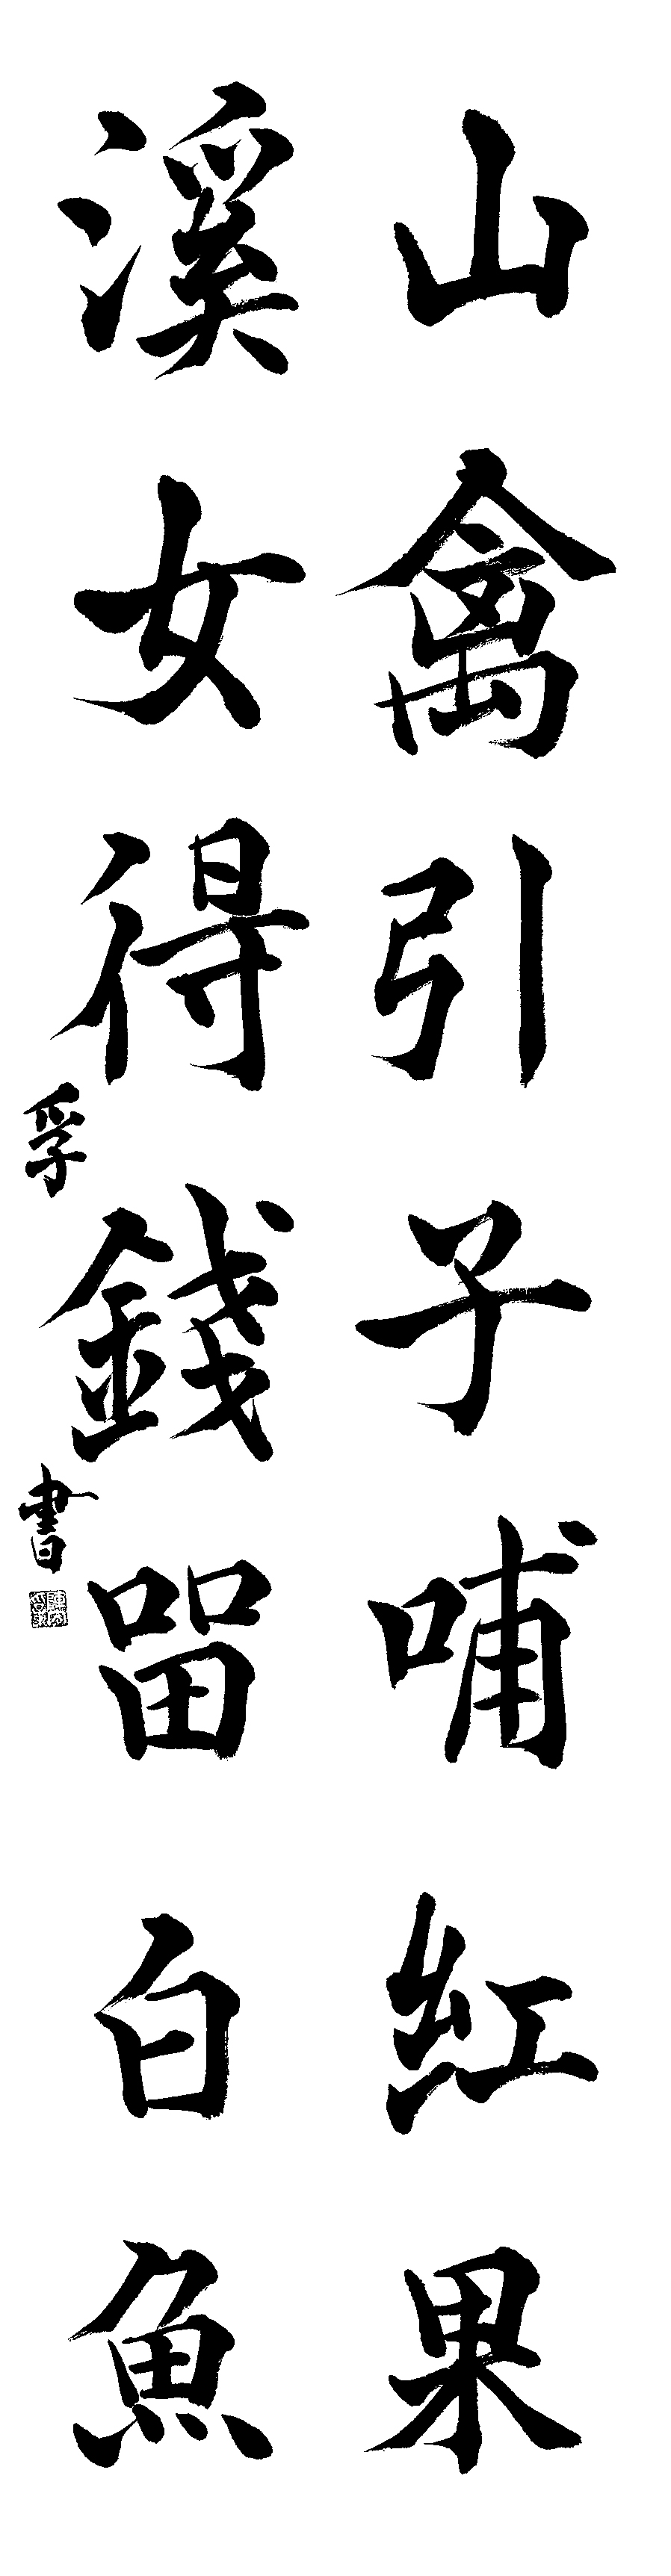 山禽引子哺紅果
溪女得錢留白魚
孚書